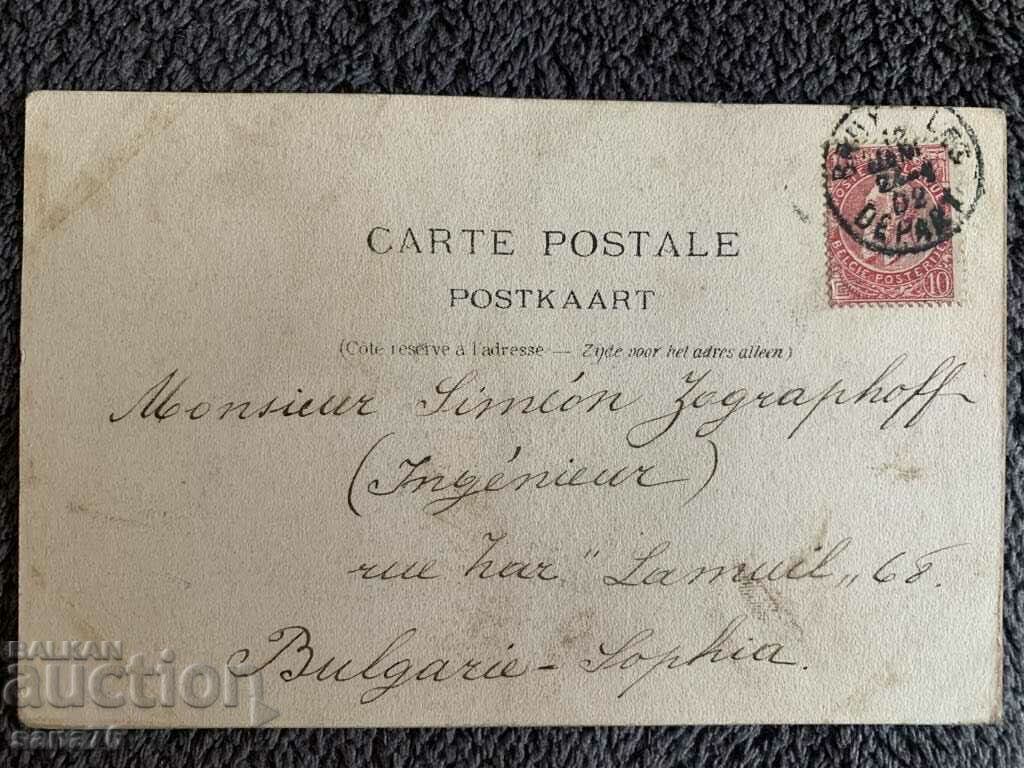 BRUXELLES
JANV
02
DEPART
POSTERIJEN
BELGIE
10
CARTE POSTALE
POSTKAART
(Côté réservé à l'adresse — Zijde voor het adres alleen)
Monsieur Siméon Zographoff
(Ingénieur)
rue Zar "Lamuil„ 68.
Bulgarie - Sophia.
BALKAN
auction
sana76